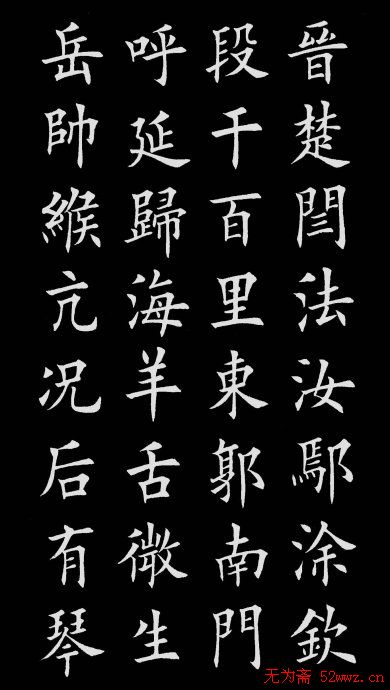 晉楚閆法汝鄢涂欽
段干百里東郭南門
呼延歸海羊舌微生
岳帥緱亢况后有琴
无为斋 52wwz.cn